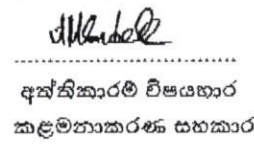 අත්තිකාරම් විෂයභාර
කළමනාකරණ සහකාර